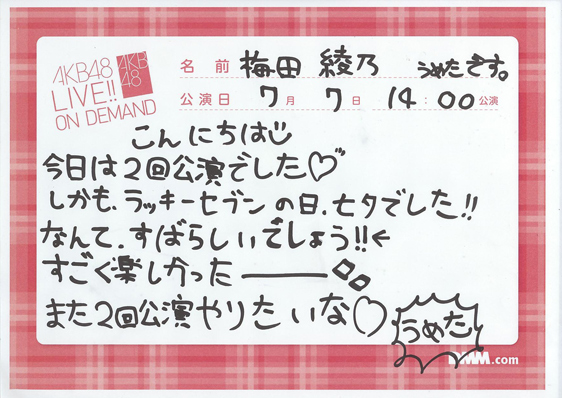 AKB48
LIVE!!
ON DEMAND
AKB
48
名 前 梅田 綾乃 うめたです。
公演日 7月 7日 14:00公演
こんにちは
今日は2回公演でした♡
しかも、ラッキーセブンの日、七夕でした!!
なんて、すばらしいでしょう!!←
すごく楽しかった―――
また2回公演やりたいな♡
うめた
DMM.com